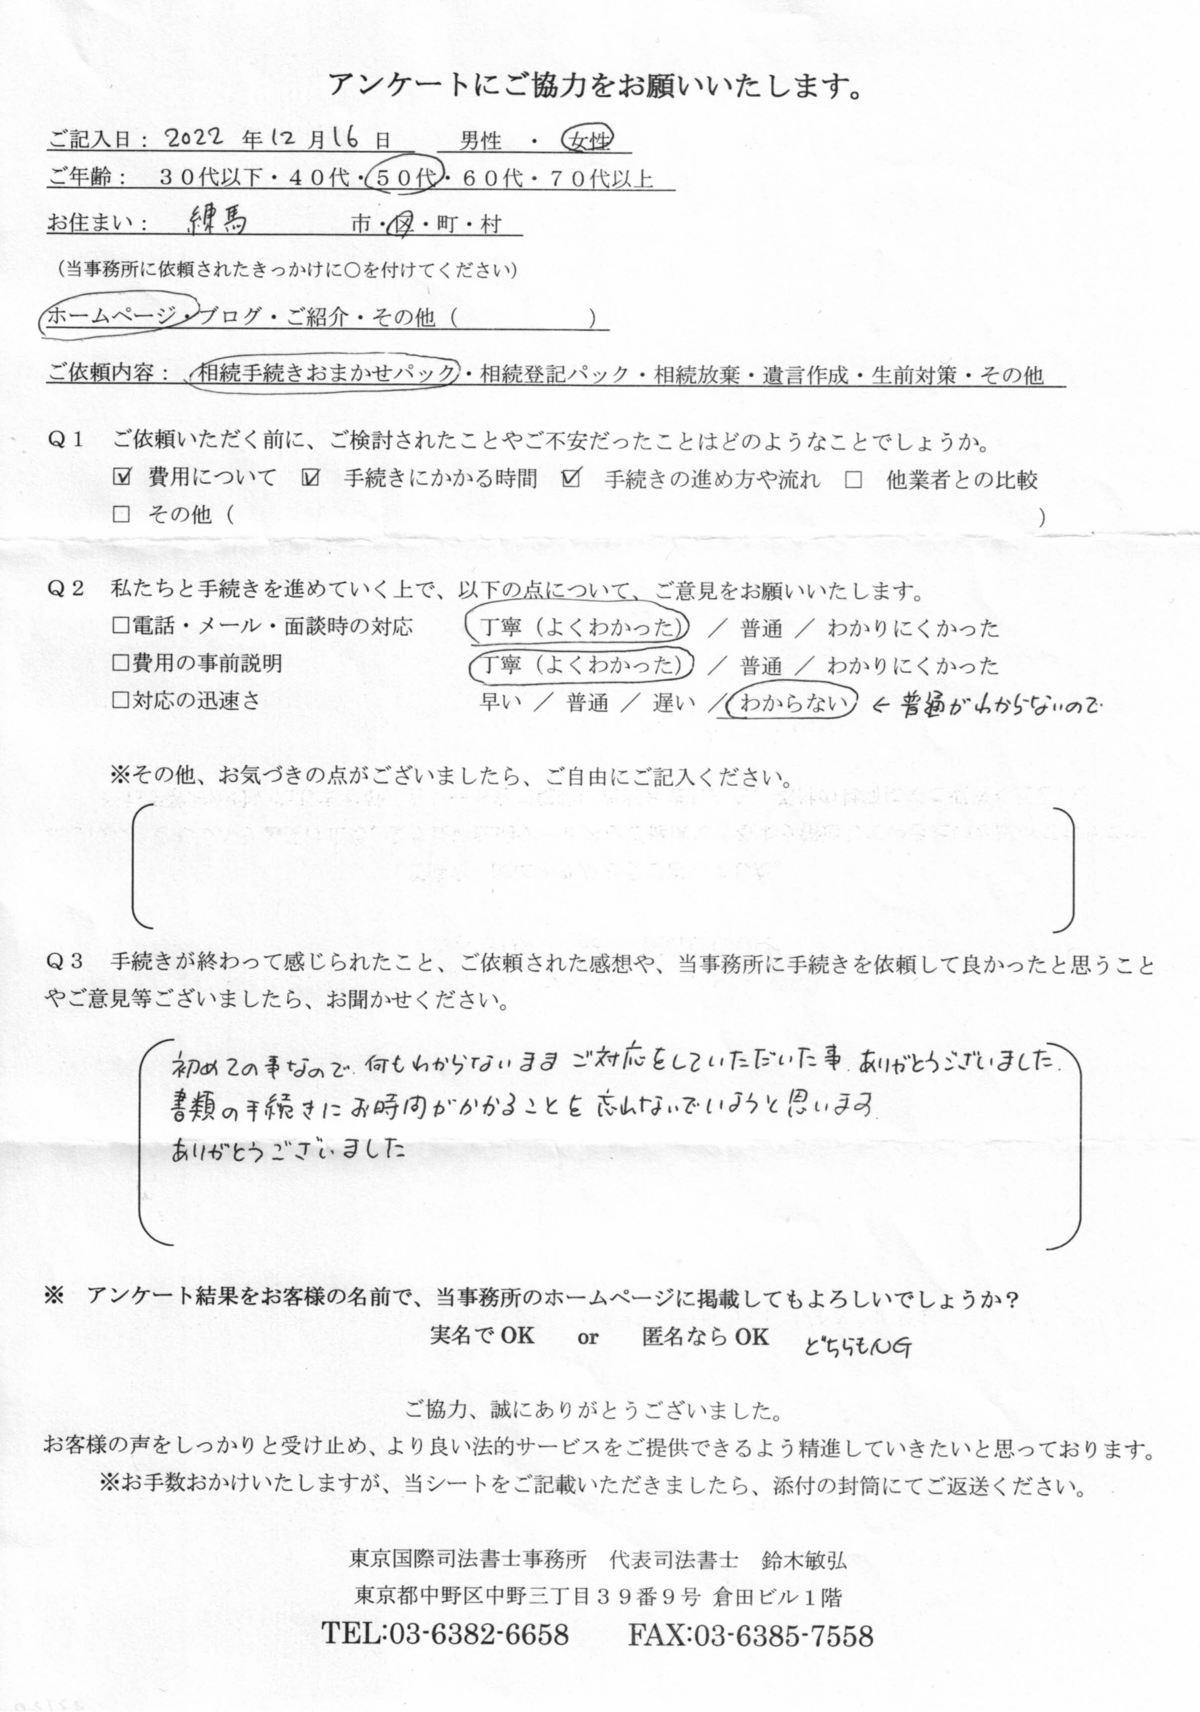 アンケートにご協力をお願いいたします。
ご記入日： 2022 年 12 月 16 日　男性　・　女性
ご年齢：　３０代以下・４０代・５０代・６０代・７０代以上
お住まい：　練馬　市・区・町・村
（当事務所に依頼されたきっかけに○を付けてください）
ホームページ・ブログ・ご紹介・その他（　　　　　　）
ご依頼内容：　相続手続きおまかせパック・相続登記パック・相続放棄・遺言作成・生前対策・その他
Ｑ１　ご依頼いただく前に、ご検討されたことやご不安だったことはどのようなことでしょうか。
☑ 費用について　☑ 手続きにかかる時間　☑ 手続きの進め方や流れ　□ 他業者との比較
□ その他（　　　　　　　　　　）
Ｑ２　私たちと手続きを進めていく上で、以下の点について、ご意見をお願いいたします。
□電話・メール・面談時の対応　丁寧（よくわかった）　／ 普通 ／ わかりにくかった
□費用の事前説明　丁寧（よくわかった）　／ 普通 ／ わかりにくかった
□対応の迅速さ　早い ／ 普通 ／ 遅い ／ わからない ← 普通がわからないので
※その他、お気づきの点がございましたら、ご自由にご記入ください。
Ｑ３　手続きが終わって感じられたこと、ご依頼された感想や、当事務所に手続きを依頼して良かったと思うこと
やご意見等ございましたら、お聞かせください。
初めての事なので、何もわからないまま ご対応をしていただいた事、ありがとうございました。
書類の手続きにお時間がかかることを 忘れないでいようと思います。
ありがとうございました
※　アンケート結果をお客様の名前で、当事務所のホームページに掲載してもよろしいでしょうか？
実名で OK　or　匿名なら OK　どちらもNG
ご協力、誠にありがとうございました。
お客様の声をしっかりと受け止め、より良い法的サービスをご提供できるよう精進していきたいと思っております。
※お手数おかけいたしますが、当シートをご記載いただきましたら、添付の封筒にてご返送ください。
東京国際司法書士事務所　代表司法書士　鈴木敏弘
東京都中野区中野三丁目３９番９号 倉田ビル１階
TEL:03-6382-6658　FAX:03-6385-7558